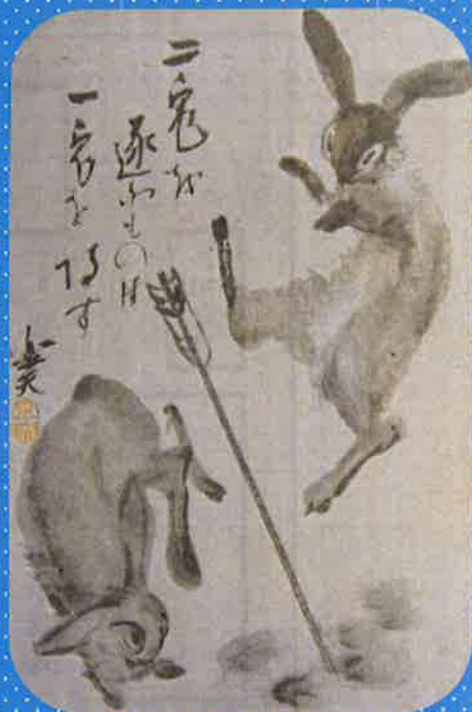 二兎を
逐ふものは
一兎を
得す